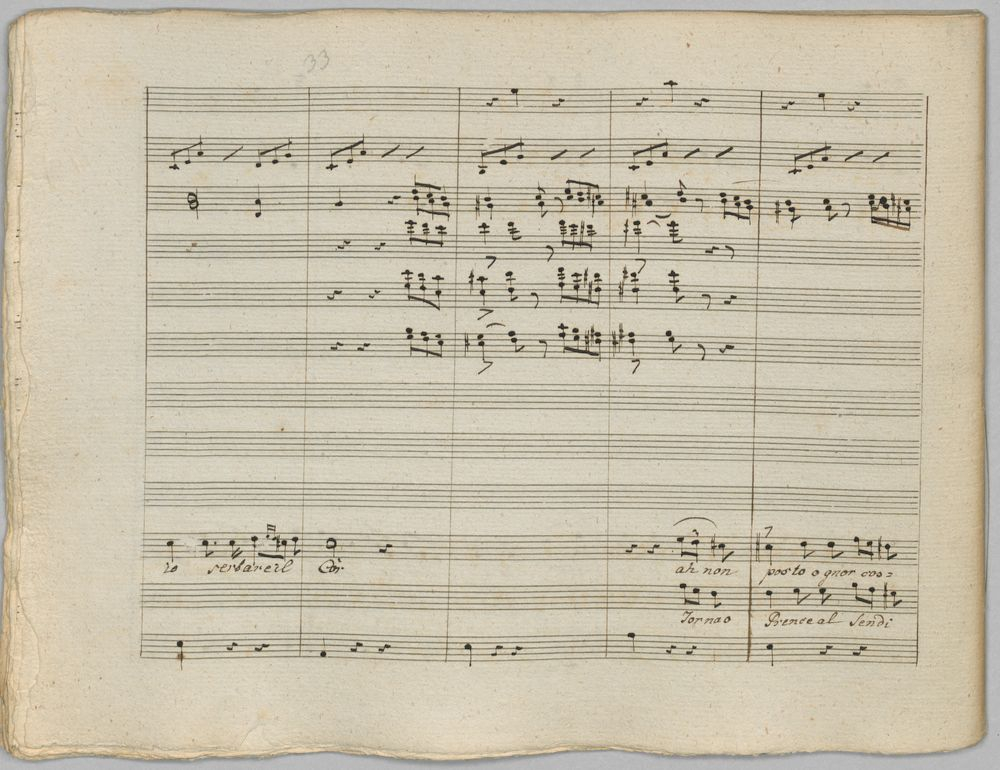 33
io serbare il Cor ah non posso ognor coo=
Torna o Prence al Sendi